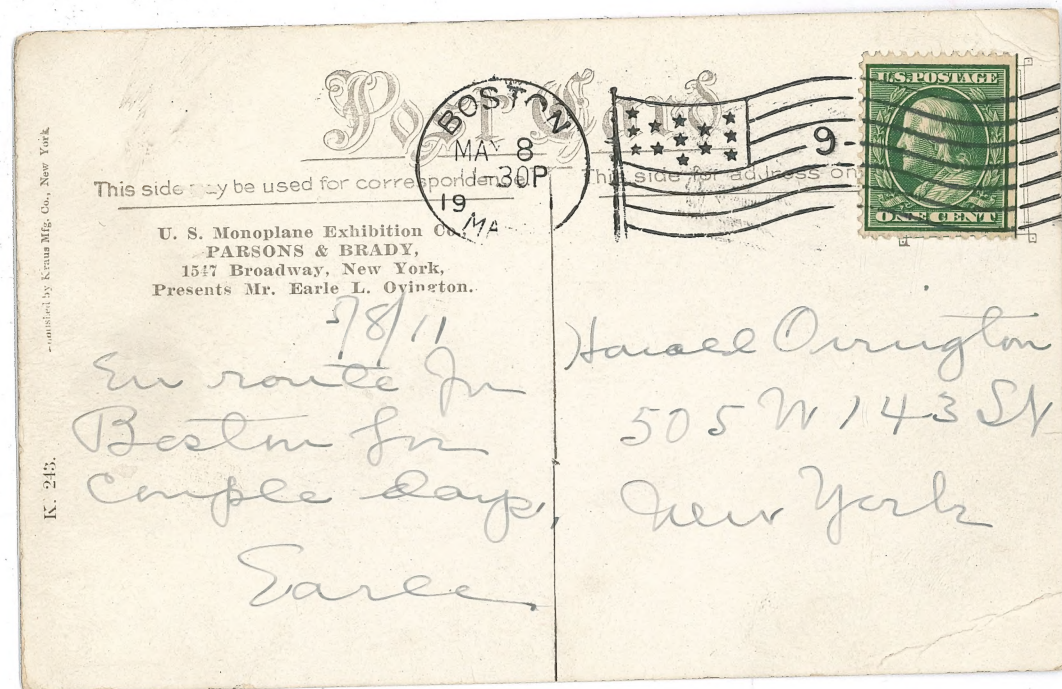 Post Card
BOSTON
MAY 8
-30P
19
MA
9
U.S. POSTAGE
ONE CENT
This side may be used for correspondence
This side for address on
U. S. Monoplane Exhibition Co.
PARSONS & BRADY,
1547 Broadway, New York,
Presents Mr. Earle L. Ovington.
5/8/11
En route for
Boston for
couple days,
Earle.
Harold Ovington
505 W 143 St
New York
by Kraus Mfg. Co., New York
K. 243.